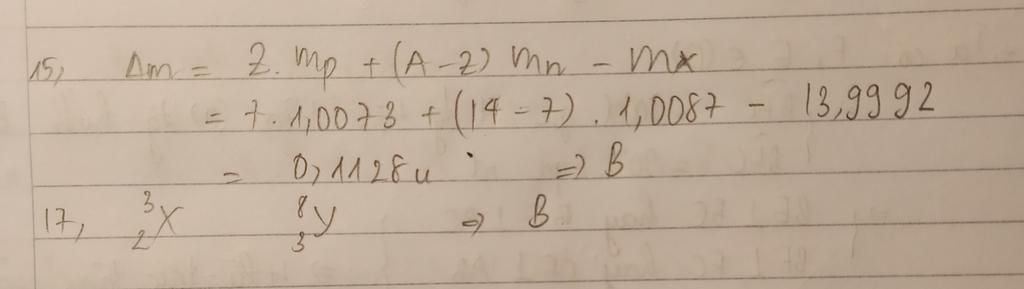 15, Δm = Z. mp + (A - Z) mn - mx
= 7. 1,0073 + (14 - 7) . 1,0087 - 13,9992
= 0,1128u => B
17, ³₂X ⁸₃Y => B